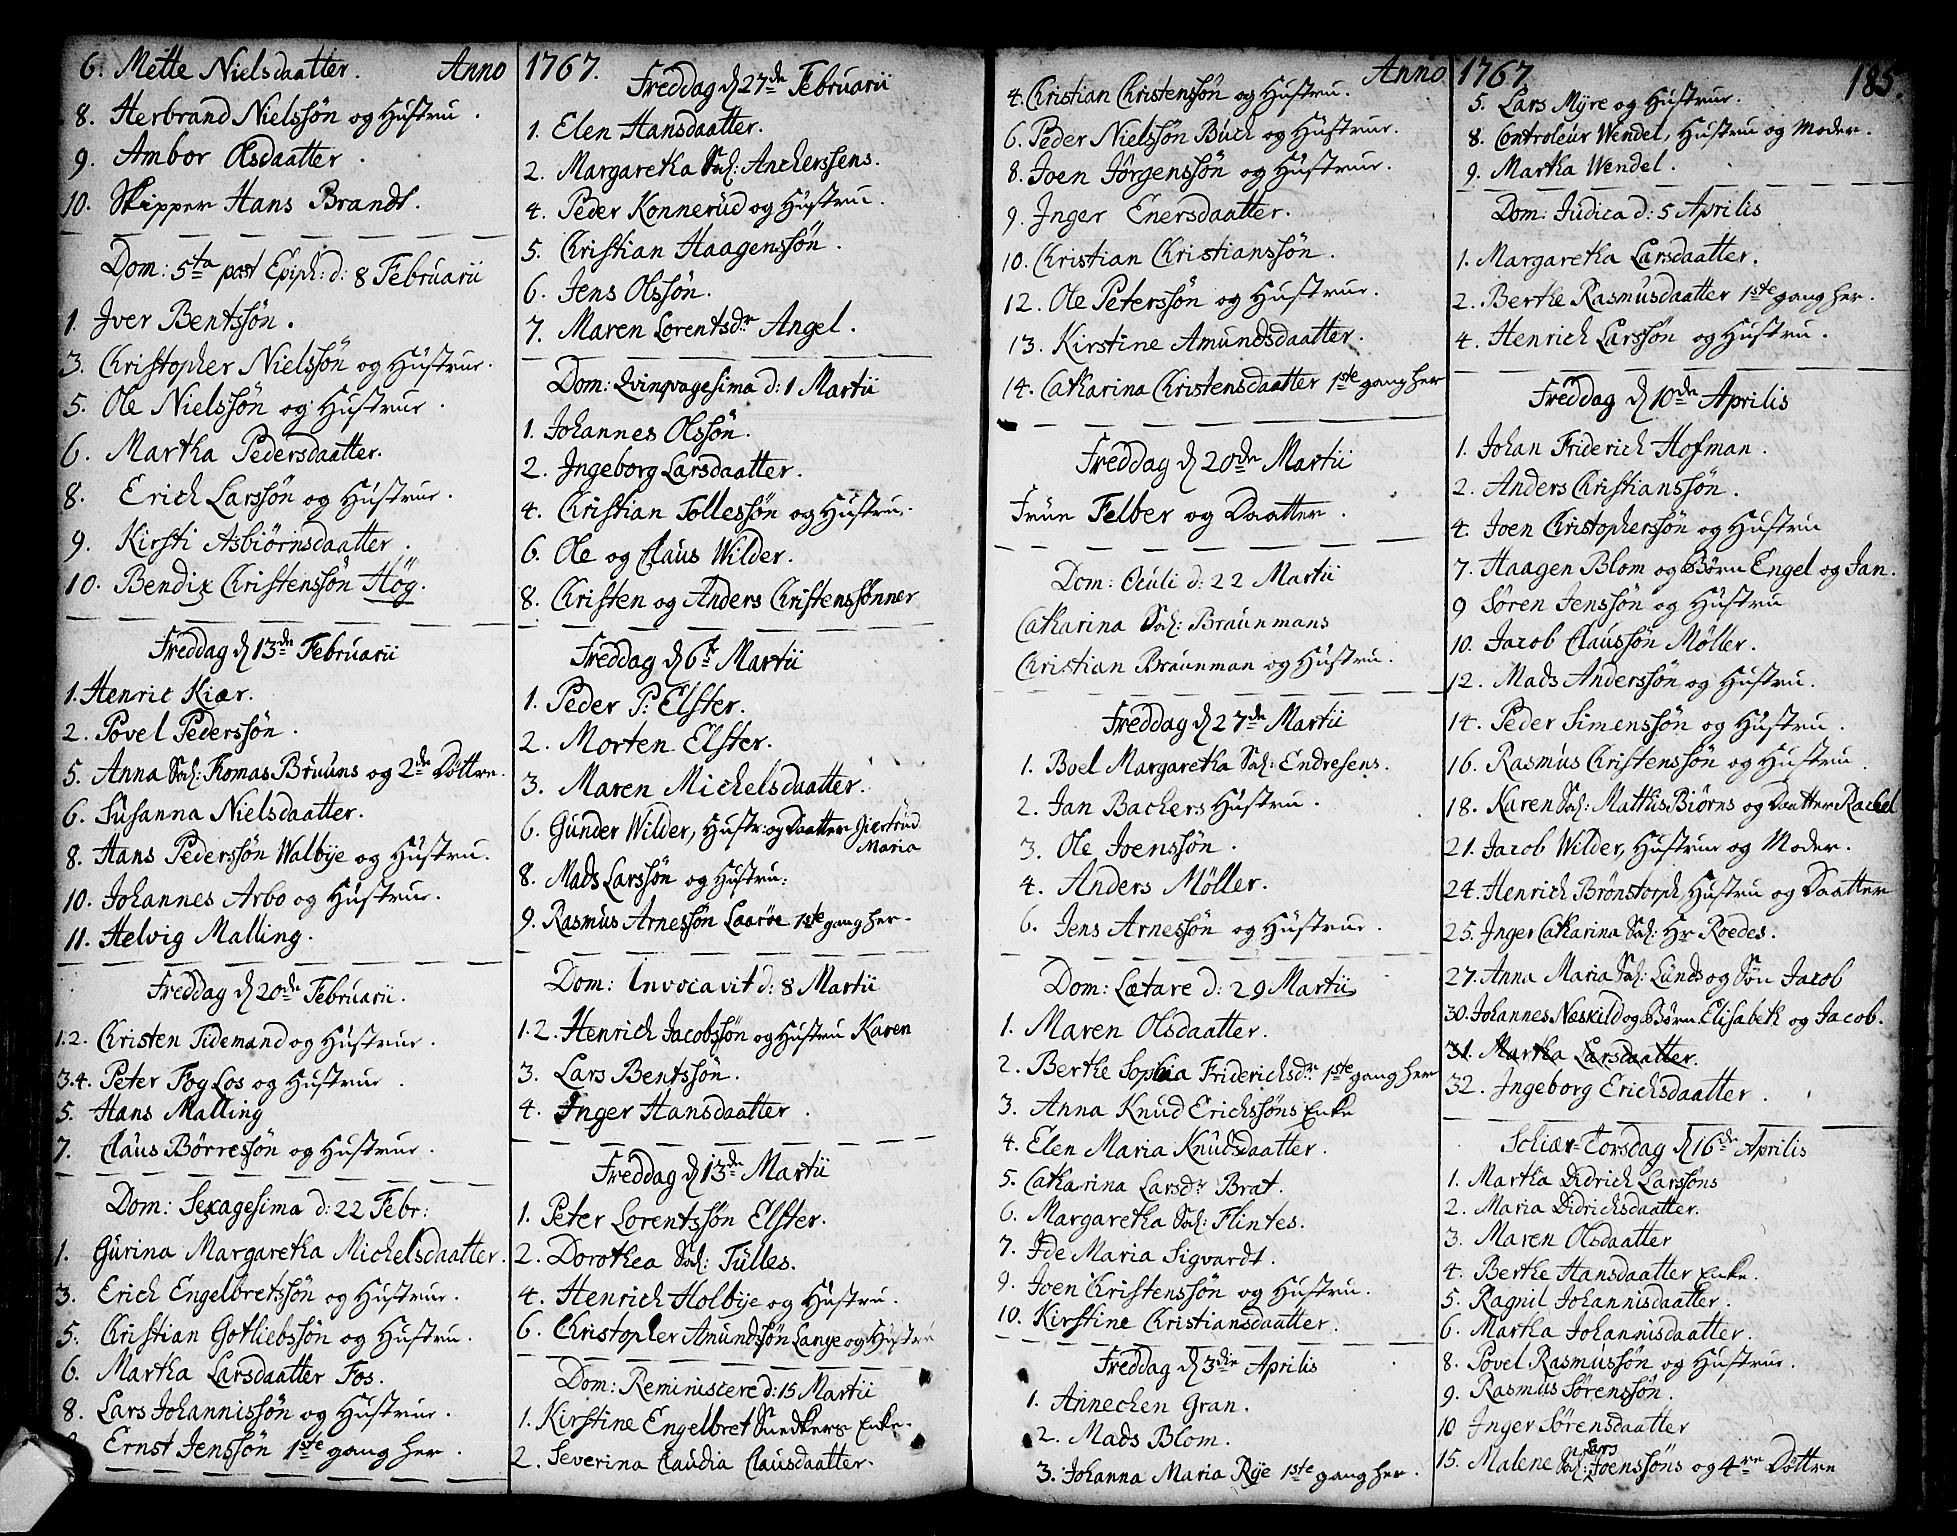 6. Mette Nielsdaatter. Anno
8. Herbrand Nielssøn og Hustru.
9. Ambor Olsdaatter.
10. Skipper Hans Brandt.
Dom: 5ta post Epiph: d: 8 Februarii
1. Iver Bentssøn.
3. Christopher Nielssøn og Hustrue.
5. Ole Nielssøn og Hustrue.
6. Martha Pedersdaatter.
8. Erich Larssøn og Hustrue.
9. Kirsti Asbiørnsdaatter.
10. Bendix Christenssøn Høg.
Freddag d 13de Februarii
1. Henric Kiær.
2. Povel Pederssøn.
5. Anna Sal: Thomas Bruuns og 2de Døttre.
6. Susanna Nielsdaatter.
8. Hans Pederssøn Walbye og Hustru.
10. Johannes Arbo og Hustrue.
11. Helvig Malling.
Freddag d 20de Februarii.
1.2. Christen Tidemand og Hustrue.
3.4. Peter Fog Los og Hustrue.
5. Hans Malling
7. Claus Børressøn og Hustrue.
Dom: Sexagesima d: 22 Febr:
1. Gurina Margaretha Michelsdaatter.
3. Erich Engelbretssøn og Hustrue.
5. Christian Gotliebssøn og Hustru.
6. Martha Larsdaatter Fos.
8. Lars Johannissøn og Hustrue.
Ernst Jenssøn 1ste gang her.
1767.
Freddag d 27de Februarii
1. Elen Hansdaatter.
2. Margaretha Sal: Anchersens.
4. Peder Konnerud og Hustrue.
5. Christian Haagenssøn.
6. Jens Olssøn.
7. Maren Lorentsdr Angel.
Dom: Qvinqvagesima d: 1 Martii
1. Johannes Olssøn.
2. Ingeborg Larsdaatter.
4. Christian Tollessøn og Hustru.
6. Ole og Claus Wilder.
8. Christen og Anders Christenssønner
Freddag d 6te Martii
1. Peder P: Elster.
2. Morten Elster.
3. Maren Michelsdaatter.
6. Gunder Wilder, Hustr: og Daatter Giertrud
Maria
8. Mads Larssøn og Hustru:
9. Rasmus Arnessøn Laarøe 1ste gang her.
Dom: Invocavit d: 8 Martii
1.2. Henrich Jacobssøn og Hustru Karen
3. Lars Bentssøn.
4. Inger Hansdaatter.
Freddag d 13de Martii
1. Peter Lorentssøn Elster.
2. Dorothea Sal: Tulles.
4. Henrich Holbye og Hustru.
6. Christopher Amundssøn Lange og Hustru
Dom: Reminiscere d: 15 Martii
1. Kirstine Engelbret Snedkers Enke.
2. Severina Claudia Clausdaatter.
Anno
4. Christian Christenssøn og Hustru.
6. Peder Nielssøn Buch og Hustrue.
8. Joen Jørgenssøn og Hustrue.
9. Inger Enersdaatter.
10. Christian Christianssøn.
12. Ole Peterssøn og Hustrue.
13. Kirstine Amundsdaatter.
14. Catharina Christensdaatter 1ste gang her
Freddag d 20de Martii
Frue Felber og Daatter.
Dom: Oculi d: 22 Martii
Catharina Sal: Braunmans
Christian Braunman og Hustru.
Freddag d 27de Martii
1. Boel Margaretha Sal: Endresens.
2. Jan Bachers Hustru.
3. Ole Joenssøn.
4. Anders Møller.
6. Jens Arnessøn og Hustrue.
Dom: Lætare d: 29 Martii
1. Maren Olsdaatter.
2. Berthe Sophia Friderichsdr 1ste gang her
3. Anna Knud Erichssøns Enke
4. Elen Maria Knudsdaatter.
5. Catharina Larsdr Brat.
6. Margaretha Sal: Flintes.
7. Ide Maria Sigvardt.
9. Joen Christenssøn og Hustru.
10. Kirstine Christiansdaatter.
Freddag d 3die Aprilis
1. Annechen Gran.
2. Mads Blom.
3. Johanna Maria Rye 1ste gang her.
1767. 185.
5. Lars Myre og Hustrue.
8. Controleur Wendel, Hustru og Moder.
9. Martha Wendel.
Dom: Judica d: 5 Aprilis
1. Margaretha Larsdaatter.
2. Berthe Rasmusdaatter 1ste gang her.
4. Henrich Larssøn og Hustru.
Freddag d 10de Aprilis
1. Johan Friderich Hofman.
2. Anders Christianssøn.
4. Joen Christopherssøn og Hustru
7. Haagen Blom og Børn Engel og Jan.
9 Søren Jenssøn og Hustru
10. Jacob Claussøn Møller.
12. Mads Anderssøn og Hustru.
14. Peder Simenssøn og Hustru.
16. Rasmus Christenssøn og Hustru.
18. Karen Sal: Mathis Biørns og Daatter Rachel
21. Jacob Wilder, Hustrue og Moder.
24. Henrich Brønstorph Hustru og Daatter
25. Inger Catharina Sal: Hr Roedes.
27. Anna Maria Sal: Lunds og Søn Jacob
30. Johannes Næskild og Børn Elisabeth og Jacob.
31. Martha Larsdaatter.
32. Ingeborg Erichsdaatter.
Schiær-Torsdag d 16de Aprilis
1. Martha Didrich Larssøns
2. Maria Didrichsdaatter.
3. Maren Olsdaatter
4. Berthe Hansdaatter Enke.
5. Ragnil Johannisdaatter.
6. Martha Johannisdaatter.
8. Povel Rasmussøn og Hustrue.
9. Rasmus Sørenssøn.
10 Inger Sørensdaatter
15. Malene Sal: Lars Joenssøns og 4re Døttre